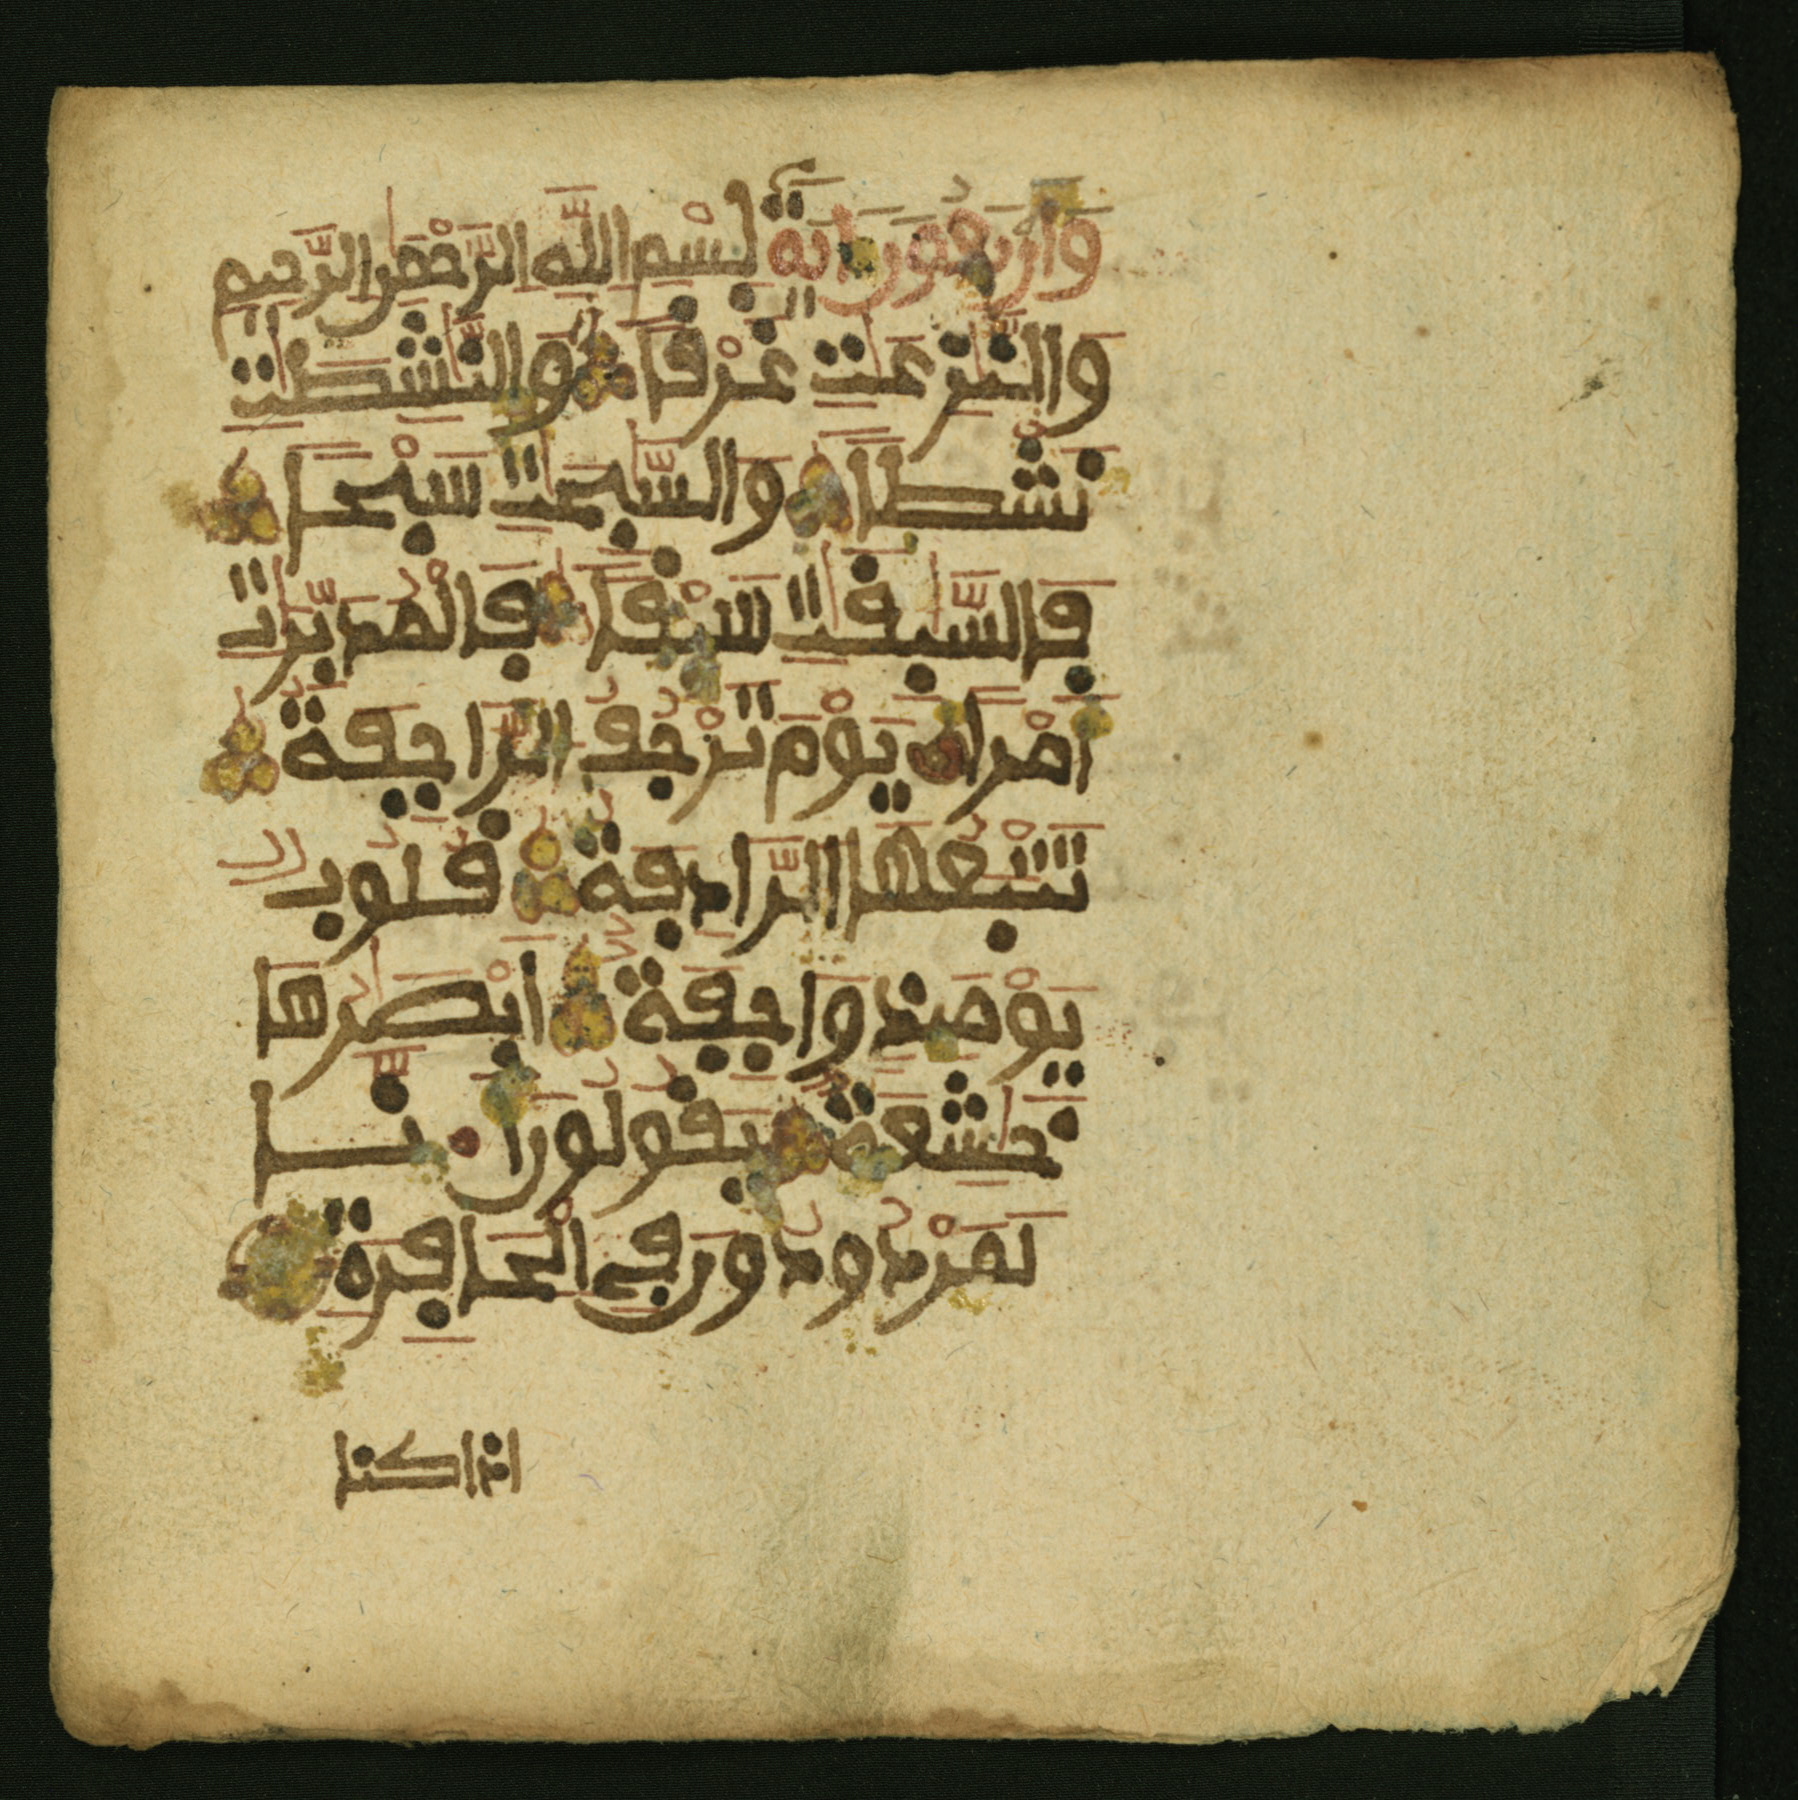 وَأَرْبَعُونَ ءَايَةً بِسْمِ اللَّهِ الرَّحْمَٰنِ الرَّحِيمِ
وَالنَّٰزِعَٰتِ غَرْقًا وَالنَّٰشِطَٰتِ
نَشْطًا وَالسَّٰبِحَٰتِ سَبْحًا
فَالسَّٰبِقَٰتِ سَبْقًا فَالْمُدَبِّرَٰتِ
أَمْرًا يَوْمَ تَرْجُفُ الرَّاجِفَةُ
تَتْبَعُهَا الرَّادِفَةُ قُلُوبٌ
يَوْمَئِذٍ وَاجِفَةٌ أَبْصَٰرُهَا
خَٰشِعَةٌ يَقُولُونَ أَ۟نَّا
لَمَرْدُودُونَ فِي الْحَافِرَةِ
اذا كنا